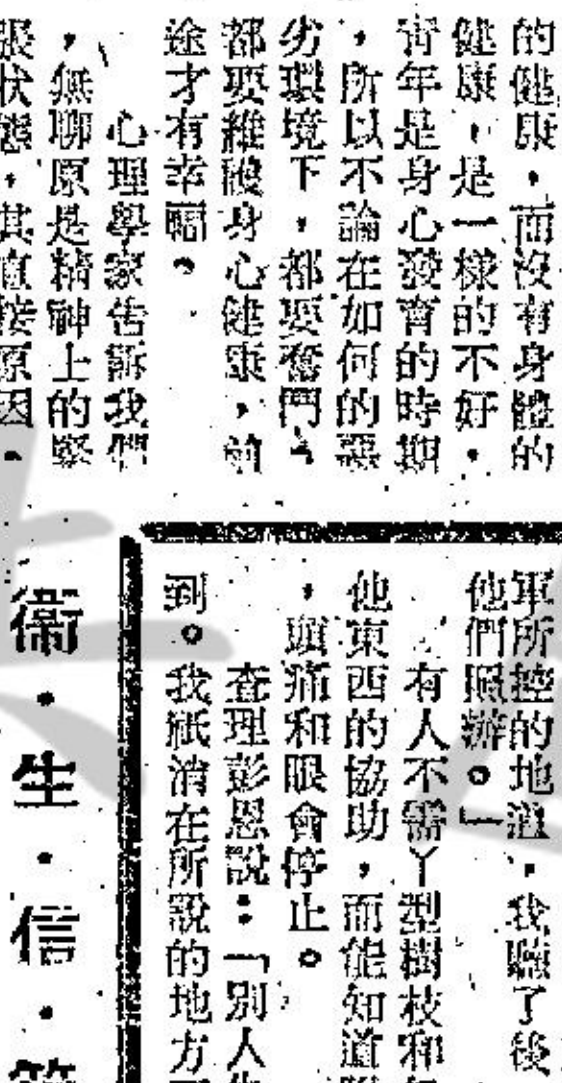 的健康，而沒有身體的
健康，是一樣的不好。
青年是身心發育的時期
，所以不論在如何的惡
劣環境下，都要奮鬥，
都要維護身心健康，前
途才有幸福。
心理學家告訴我們
，無聊原是精神上的緊
張狀態，其直接原因，
軍所控的地道，我聽了後
他們照辦。」
有人不需丫型樹枝和
他東西的協助，而能知道
，頭痛和眼會停止。
查理彭恩說：「別人
到。我祇消在所說的地方
衛・生・信・箱